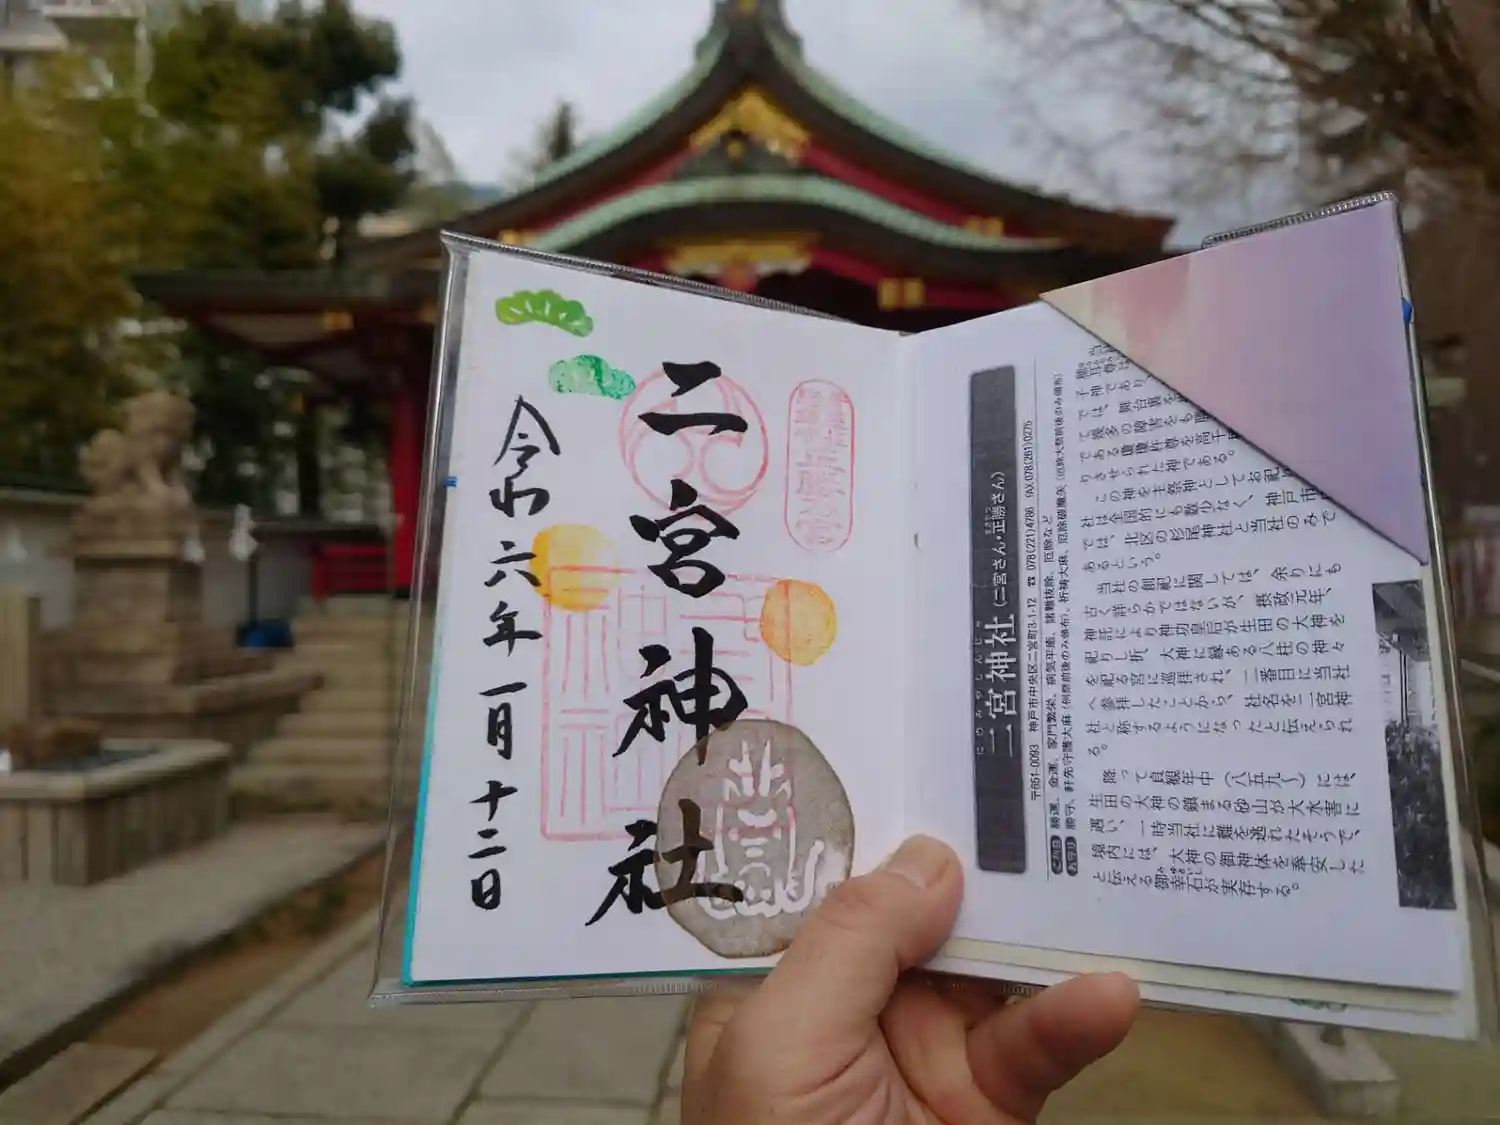 二宮神社
令和六年一月十二日
二宮神社
にのみやじんじゃ
(二宮さん・正勝さん)
〒651-0093 神戸市中央区二宮町3-1-12 ☎ 078(221)4786 FAX.078(261)0275
ご利益 勝運、金運、家門繁栄、病気平癒、諸難抜除、厄除など
お守り 勝守、軒先守護大麻(例祭前後のみ頒布)、祈祷大麻、厄除破魔矢(厄除大祭前後のみ頒布)
子神であり、
では、舞台裏を
て幾多の障害をも
である瓊瓊杵尊を高千
りさせられた神である。
この神を主祭神としてお祀
社は全国的にも数少なく、神戸市
では、北区の杉尾神社と当社のみで
あるという。
当社の創祀に関しては、余りにも
古く詳らかではないが、摂政元年、
神託により神功皇后が生田の大神を
祀りし折、大神に縁ある八柱の神々
を祀る宮に巡拝され、二番目に当社
へ参拝したことから、社名を二宮神
社と称するようになったと伝えられ
る。
降って貞観年中(八五九〜)には、
生田の大神の鎮まる砂山が大水害に
遇い、一時当社に難を逃れたそうで、
境内には、大神の御神体を奉安した
と伝える御幸石が実存する。